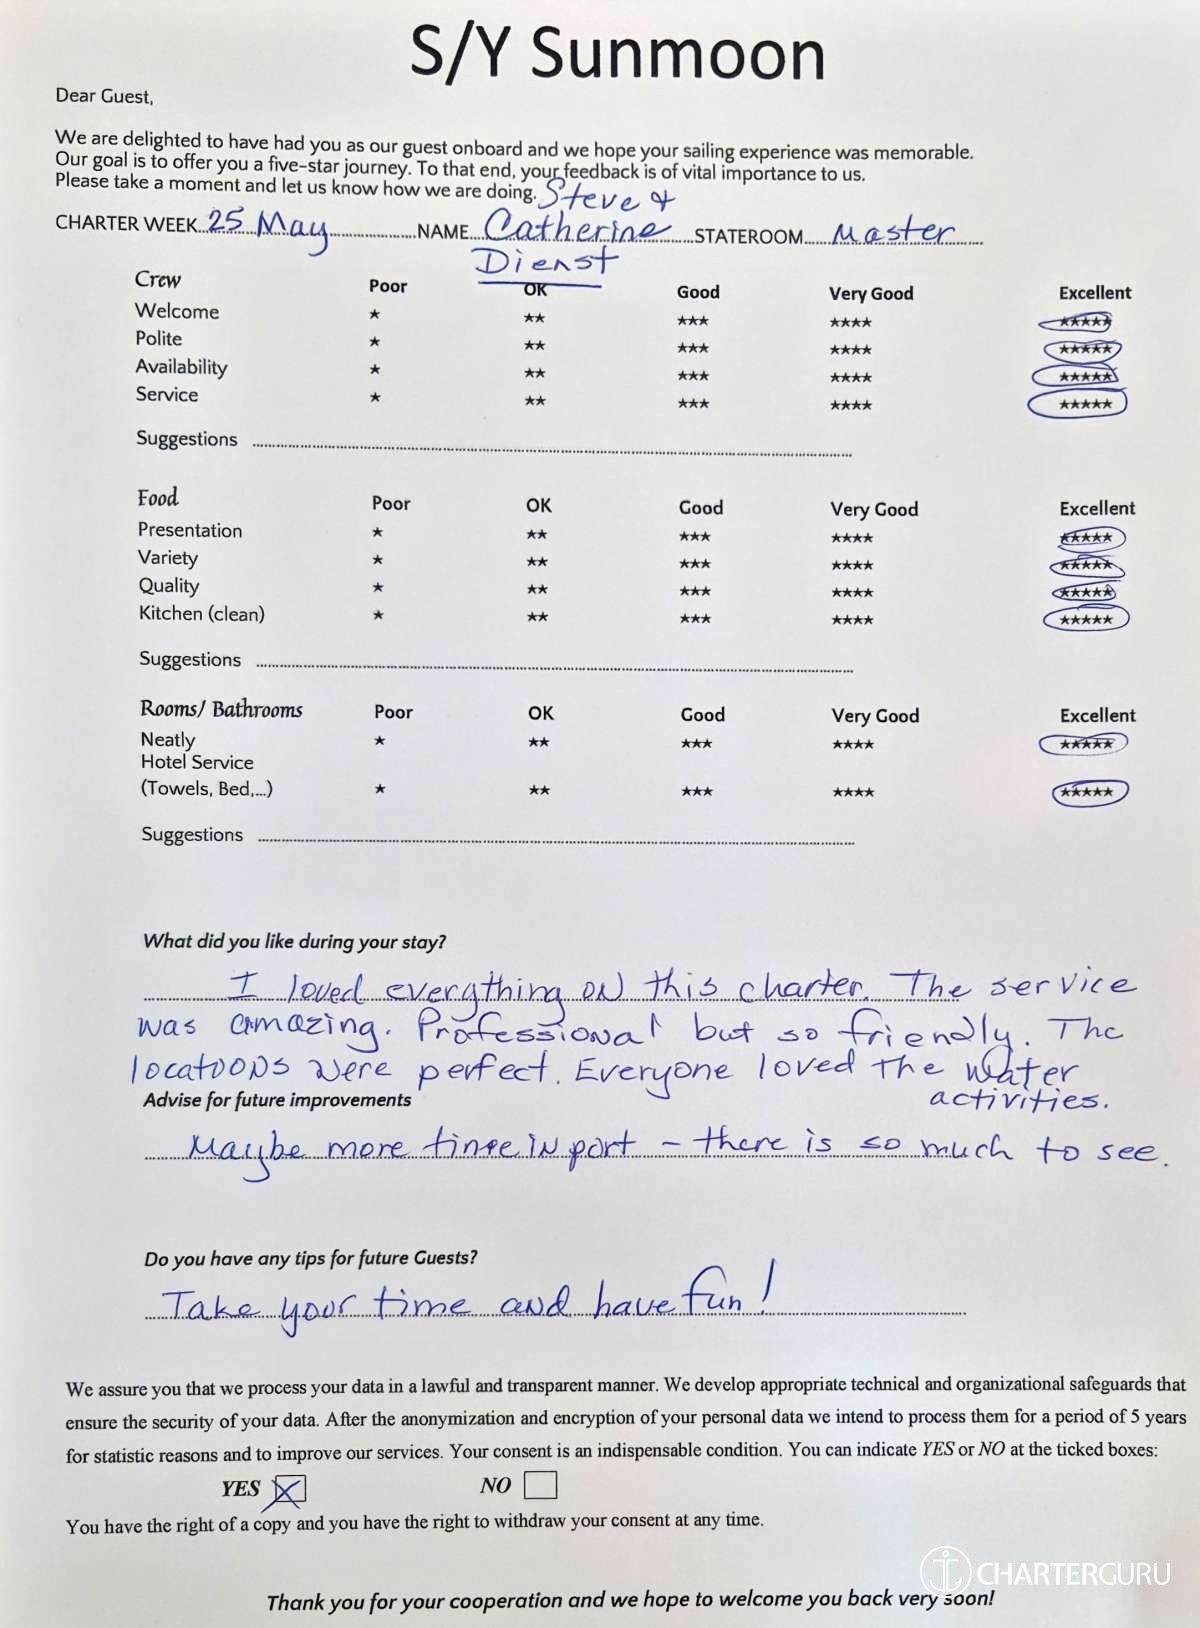 S/Y Sunmoon
Dear Guest,
We are delighted to have had you as our guest onboard and we hope your sailing experience was memorable.
Our goal is to offer you a five-star journey. To that end, your feedback is of vital importance to us.
Please take a moment and let us know how we are doing. Steve &
CHARTER WEEK 25 May NAME Catherine STATEROOM Master
Dienst
Crew Poor OK Good Very Good Excellent
Welcome ★ ★★ ★★★ ★★★★ ★★★★★
Polite ★ ★★ ★★★ ★★★★ ★★★★★
Availability ★ ★★ ★★★ ★★★★ ★★★★★
Service ★ ★★ ★★★ ★★★★ ★★★★★
Suggestions
Food Poor OK Good Very Good Excellent
Presentation ★ ★★ ★★★ ★★★★ ★★★★★
Variety ★ ★★ ★★★ ★★★★ ★★★★★
Quality ★ ★★ ★★★ ★★★★ ★★★★★
Kitchen (clean) ★ ★★ ★★★ ★★★★ ★★★★★
Suggestions
Rooms/ Bathrooms Poor OK Good Very Good Excellent
Neatly ★ ★★ ★★★ ★★★★ ★★★★★
Hotel Service
(Towels, Bed,...) ★ ★★ ★★★ ★★★★ ★★★★★
Suggestions
What did you like during your stay?
I loved everything on this charter. The service
was amazing. Professional but so friendly. The
locations were perfect. Everyone loved the water
activities.
Advise for future improvements
Maybe more time in port - there is so much to see.
Do you have any tips for future Guests?
Take your time and have fun!
We assure you that we process your data in a lawful and transparent manner. We develop appropriate technical and organizational safeguards that
ensure the security of your data. After the anonymization and encryption of your personal data we intend to process them for a period of 5 years
for statistic reasons and to improve our services. Your consent is an indispensable condition. You can indicate YES or NO at the ticked boxes:
YES X NO
You have the right of a copy and you have the right to withdraw your consent at any time.
CHARTERGURU
Thank you for your cooperation and we hope to welcome you back very soon!